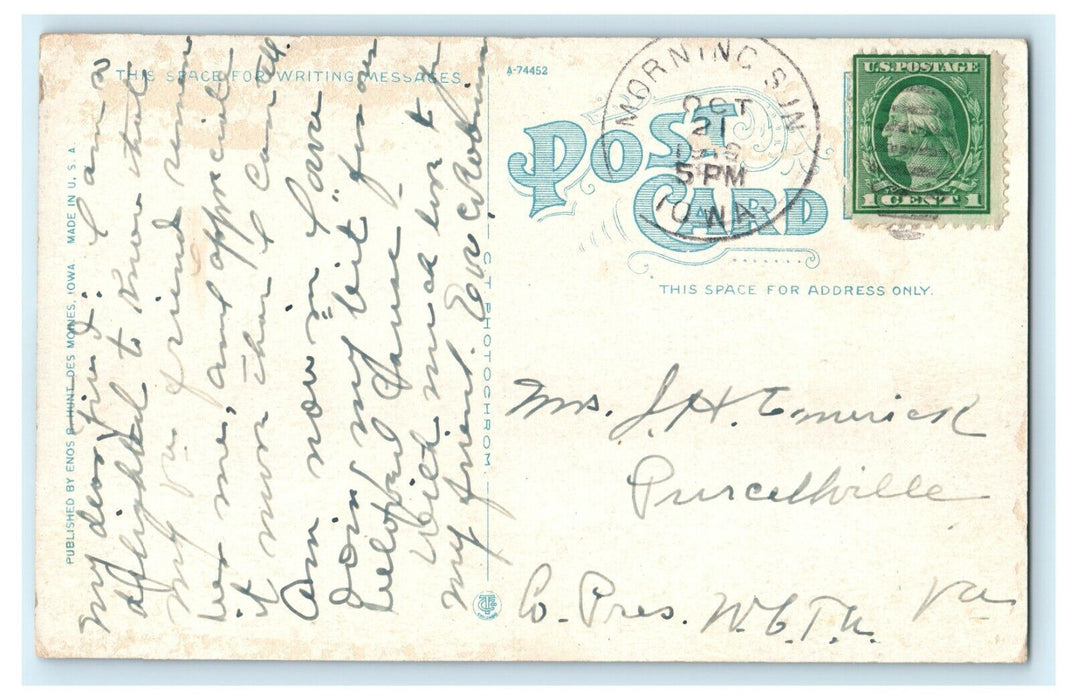 THIS SPACE FOR WRITING MESSAGES
A-74452
POST CARD
MORNING SUN
OCT
21
5 PM
IOWA.
U.S. POSTAGE
1 CENT 1
THIS SPACE FOR ADDRESS ONLY.
PUBLISHED BY ENOS B. HUNT, DES MOINES, IOWA MADE IN U.S.A.
C. T. PHOTOCHROM
My dear friend: I am
delighted to know that
my Va. friend remem
bers me, and appreciate
it more than I can tell.
Am now in Iowa
"doing my bit" for our
beloved Cause -
With much love to
my friend.
Mrs. J. H. Emerick
Purcellville
Va
Co. Pres. W.C.T.U.